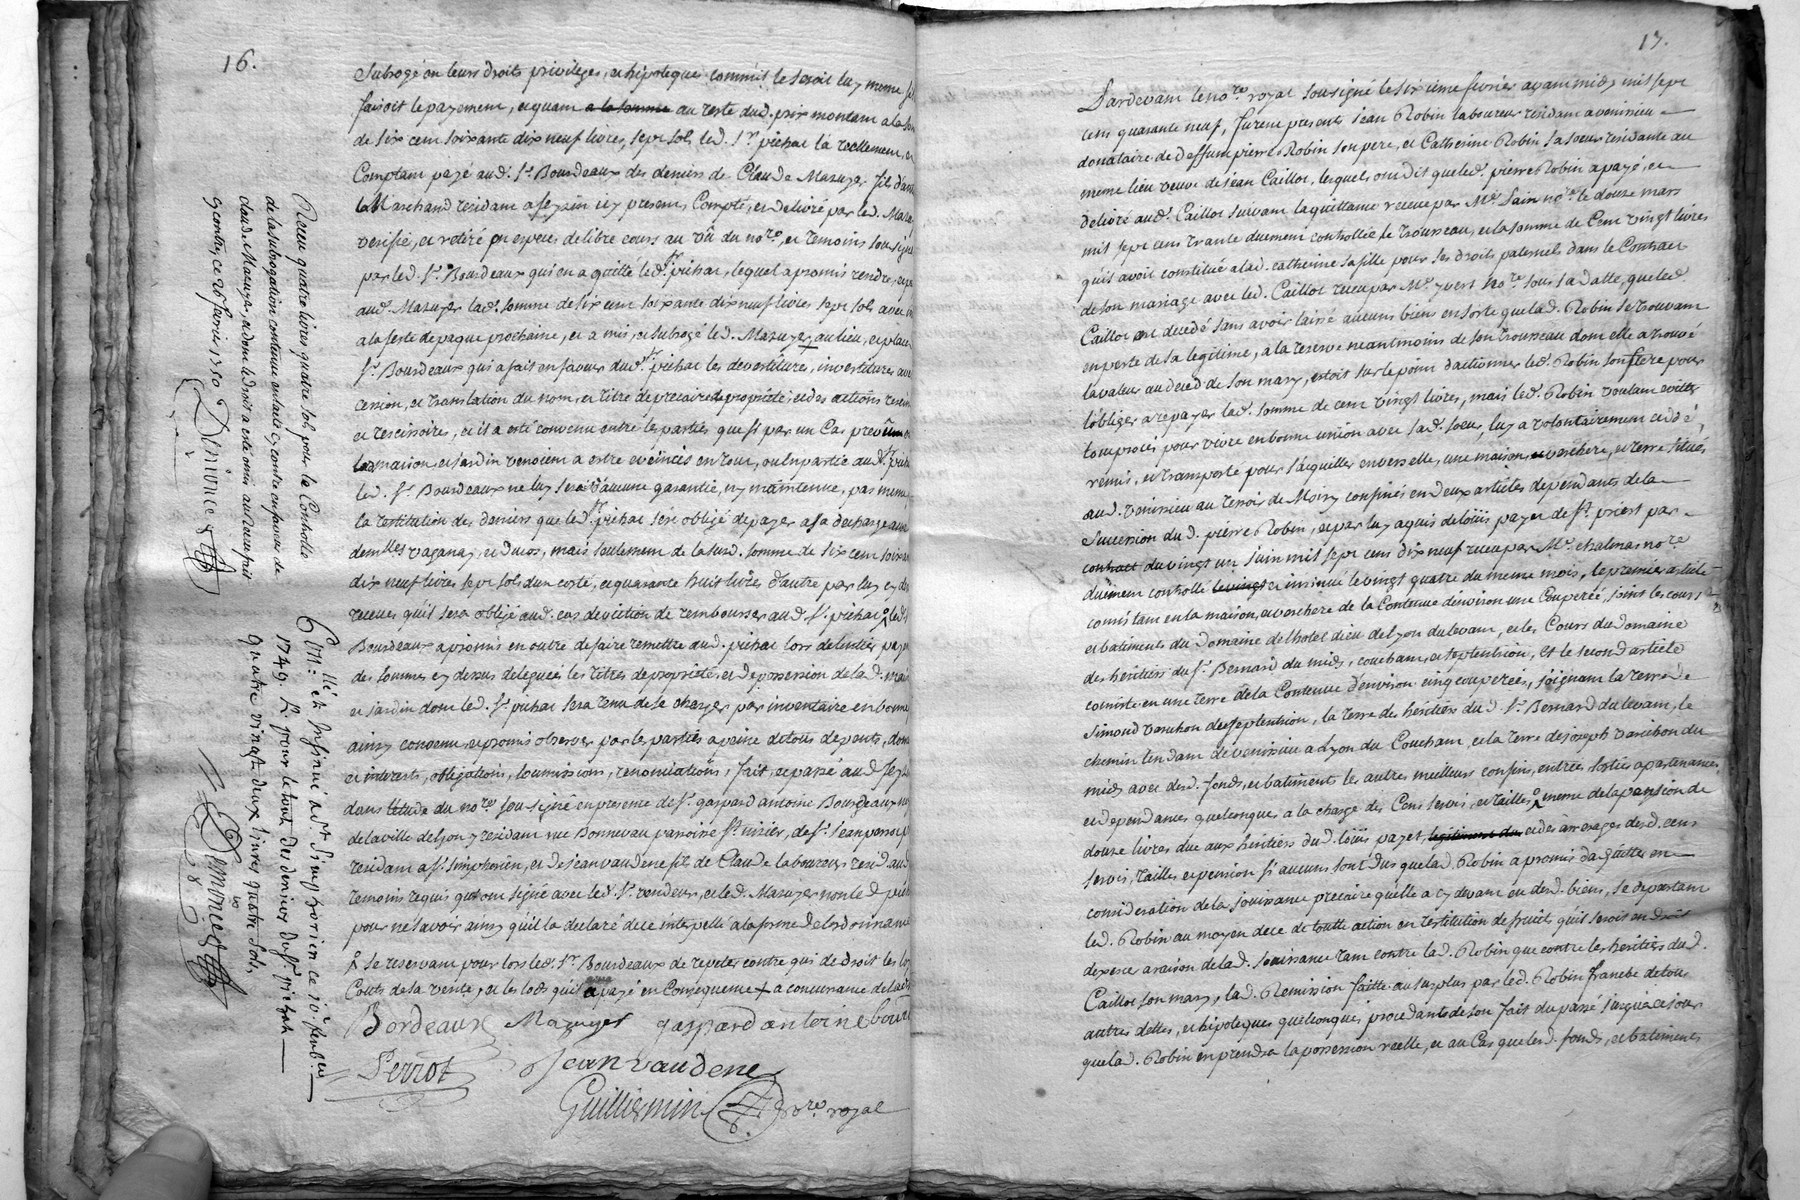 16.
Subrogé en leurs droits privileges, et hipoteques comme il le seroit luy meme s'il
faisoit le payement, et quant a la somme au reste dud. prix montant a la som
de six cent soixante dix neuf livres, sept sols, led. Sr. pichat l'a reellement, et
Comptant payé aud. Sr. Bourdeaux des deniers de Claude Mazuyer fils d'an
Marchand residant a feyzin icy present, Compté, et delivré par led. Mazu
verifié, et retiré en especes de libre cours au vû du nore. et temoins soussignes
par led. Sr. Bourdeaux qui en a quitté led. Sr. pichat, lequel a promis rendre, et pa
aud. Mazuyer lad. somme de six cent soixante dix neuf livres sept sols avec in
a la feste de paque prochaine, et a mis, et subrogé led. Mazuyer au lieu, et place
Sr. Bourdeaux qui a fait en faveur dud. Sr. pichat les devestiture, investiture avec
cession, et translation du nom, et titre de precaire de proprieté, et des actions rescin
et rescisoires, et il a esté convenu entre les parties que si par un Cas prevû
la maison et jardin venoient a estre evincés en tout, ou en partie aud. Sr. picha
led. Sr. Bourdeaux ne luy sera d'aucune garantie, ny maintenue, pas meme
la restitution des deniers que led. Sr. pichat sera obligé de payer a sa decharge aux
demlles vaganay, et ducos, mais seulement de la susd. somme de six cent soixan
dix neuf livres sept sols d'un costé, et quarante huit livres d'autre par luy cy de
receues qu'il sera obligé aud. cas d'eviction de rembourser aud. Sr. pichat, led. Sr
Bourdeaux a promis en outre de faire remettre aud. pichat lors de l'entier paye
des sommes cy dessus deleguées les titres de proprieté, et de possession de lad. mais
et jardin dont led. Sr. pichat sera tenu de se charger par inventaire en bonne
ainsy convenu, et promis observer par les parties a peine de tous depents, dom
et interets, obligations, soumissions, renonciations, fait, et passé aud. feyz
dans l'etude du nore. soussigné en presence de Sr. gaspard antoine Bourdeaux neg
de la ville de lyon y residant rue Bonneveau paroisse St. nizier, de Sr. Jean perrot
residant a St. simphorien, et de Jean vaudene fils de Claude laboureur resid. aud
temoins requis qui ont signé avec led. Sr. vendeur, et led. Mazuyer non led. picha
pour ne sçavoir ainsy qu'il l'a declaré de ce interpellé a la forme de l'ordonnance
se reservant pour lors led. Sr. Bourdeaux de repeter contre qui de droit les loy
Couts de la vente, et les lods qu'il a payé en Consequence + a concurance de lad.
Bordeaux Mazuyer gaspard antoine bourd
Perrot Jean vaudene
Guillermin nore. royal
Receu quatre livres quatre sols pour le Controlle
de la subrogation contenue en l'acte cy contre en faveur de
claude Mazuyer, et dont le droit a esté omis au receu fait
cy contre, ce 26 fevrier 1750 Demoncey
Conllé et Insinué a St. Simphorien ce 10e feubver
1749 Rt. pour le tout des deniers du Sr. pichat
quatre vingt deux livres quatre sols,
Demoncey
17.
Pardevant le nore. royal soussigné le sixieme fevrier avant midy mil sept
cens quarante neuf, furent presents Jean Robin laboureur residant a venissieu
donataire de deffunt pierre Robin son pere, et Catherine Robin sa soeur residante au
meme lieu veuve de Jean Caillot, lesquels ont dit que led. pierre Robin a payé, et
delivré aud. Caillot suivant la quittance receue par Me. Sain nore. le douze mars
mil sept cens trante duement controllée le trousseau, et la somme de Cent vingt livres
qu'il avoit constitué a lad. catherine sa fille pour ses droits paternels dans le Contract
de son mariage avec led. Caillot receu par Me. yvert nore. sous sa datte, que led.
Caillot est decedé sans avoir laissé aucuns biens en sorte que lad. Robin se trouvant
en perte de sa legitime, a la reserve neantmoins de son trousseau dont elle a trouvé
la valeur au deced de son mary, estoit sur le point d'actionner led. Robin son frere pour
l'obliger a repayer lad. somme de cent vingt livres, mais led. Robin voulant eviter
tout procés pour vivre en bonne union avec sad. soeur, luy a volontairement cedé,
remis, et transporté pour s'acquitter envers elle, une maison, et verchere, et terre situés
aud. venissieu au terroir de Moiry confinés en deux articles dependants de la
succession dud. pierre Robin, et par luy aquis de loüis payet de St. priest par
contract du vingt un Juin mil sept cens dix neuf receu par Me. chalmas nore.
duement controllé le vingt et insinué le vingt quatre du meme mois, le premier article
consistant en la maison, et verchere de la Contenue d'environ une Couperée, joint les cours
et batiments du Domaine de l'hotel dieu de lyon du levant, et les Cours du Domaine
des heritiers du Sr. Bernard du midy, couchant, et septentrion, Et le second article
consiste en une terre de la Contenue d'environ cinq couperées, joignant la terre de
simond vauchon de septentrion, la terre des heritiers dud. Sr. Bernard du levant, le
chemin tendant de venissieu a Lyon du Couchant, et la terre de joseph vacibon du
midy avec desd. fonds, et batiments les autres meilleurs confins, entrées sorties apartenances
et dependances quelconques a la charge des Cens servis, et tailles, meme de la pension de
douze livres due aux heritiers dud. loüis payet, et des arrerages desd. cens
servis, tailles et pension si aucuns sont dus que lad. Robin a promis d'aquitter en
consideration de la jouissance precaire qu'elle a cy devant eu desd. biens, se departant
led. Robin au moyen de ce de toutte action en restitution de fruits qu'il seroit en droit
d'exercer a raison de lad. jouissance tant contre lad. Robin que contre les heritiers dud.
Caillot son mary, lad. Remission faitte au surplus par led. Robin franche de tous
autres dettes, et hipoteques quelconques procedants de son fait du passé jusqu'a ce jour
que lad. Robin en prendra la possession reelle, et au Cas que lesd. fonds, et batiments